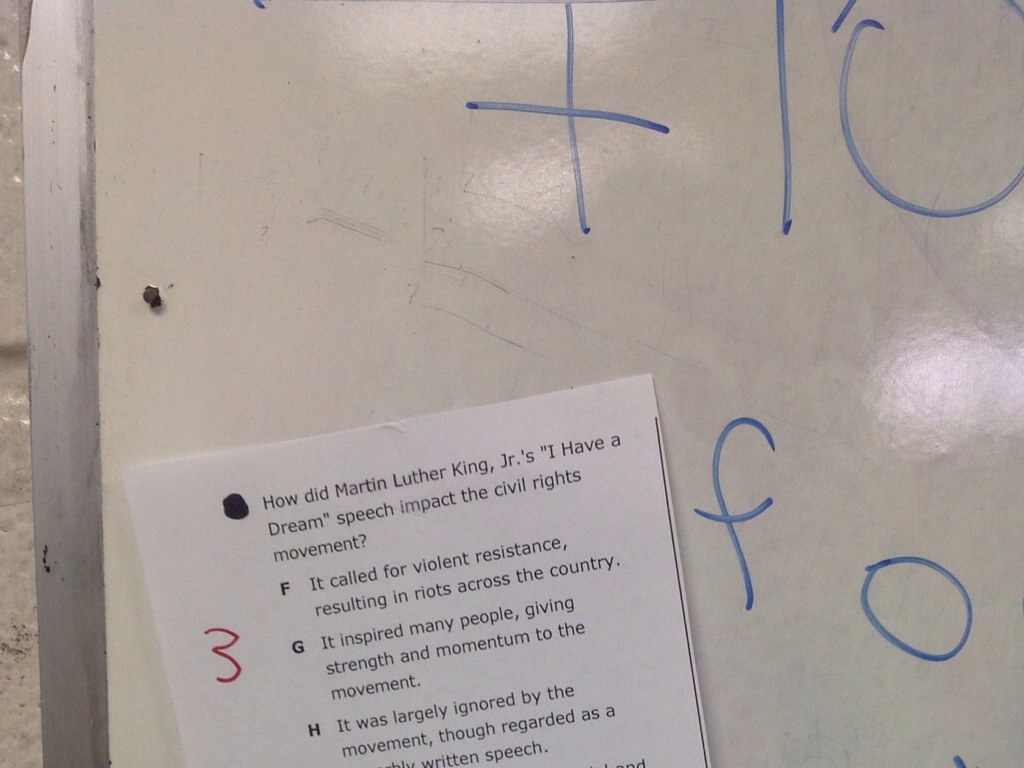 +10
How did Martin Luther King, Jr.'s "I Have a
Dream" speech impact the civil rights
movement?
F It called for violent resistance,
resulting in riots across the country.
3
G It inspired many people, giving
strength and momentum to the
movement.
H It was largely ignored by the
movement, though regarded as a
written speech.
and
f
o